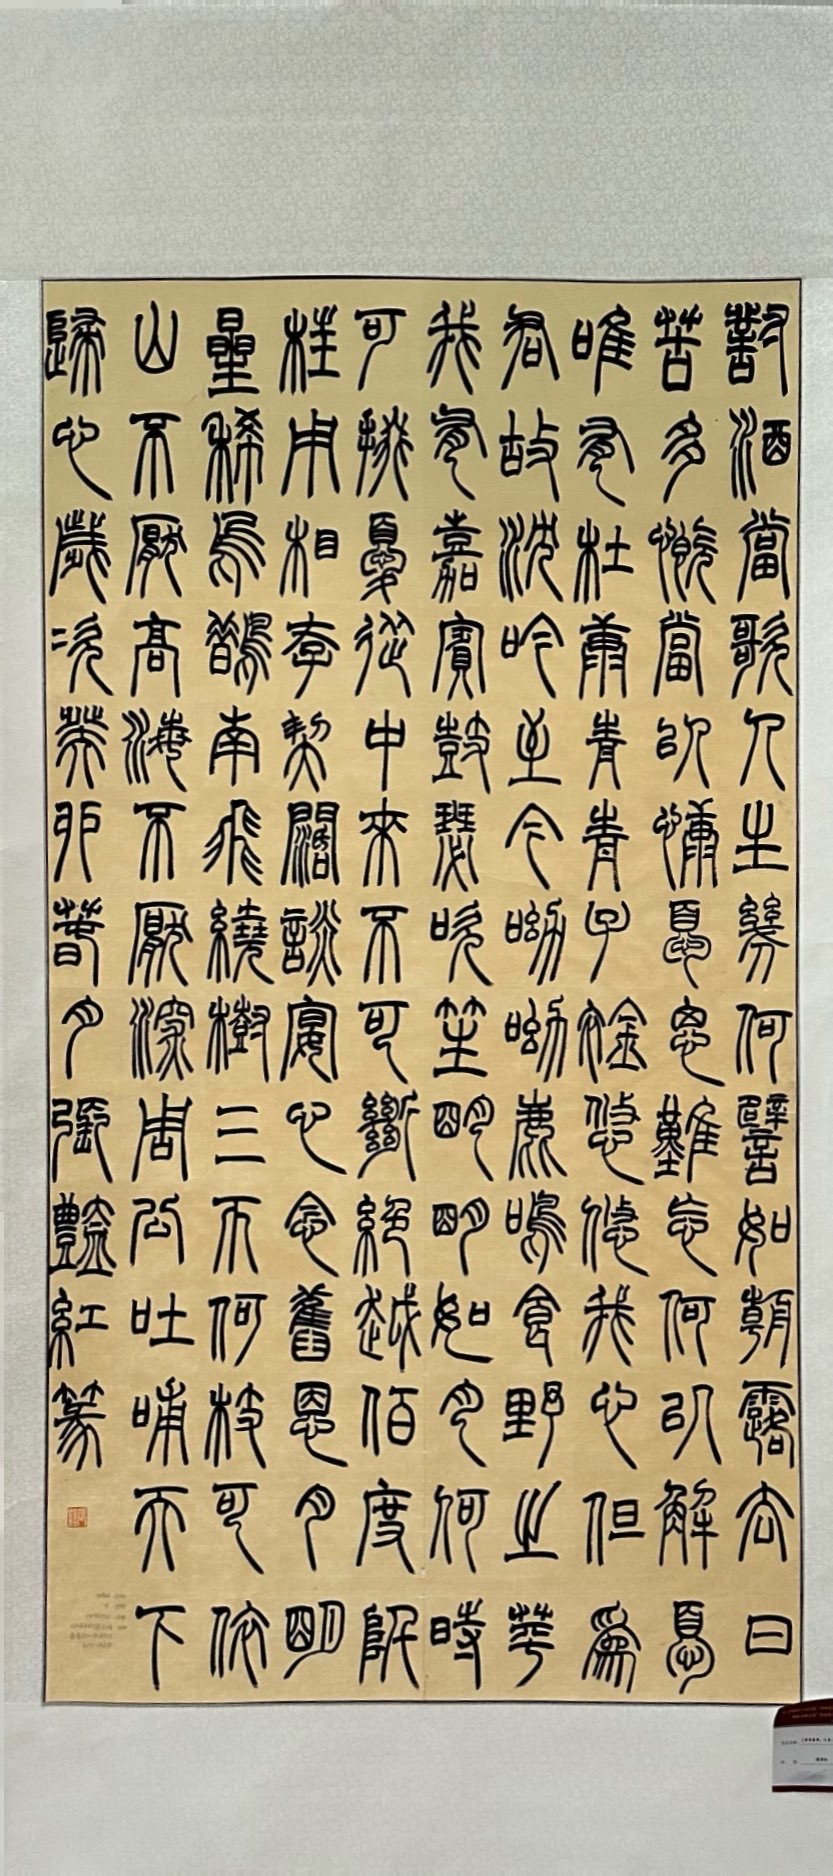 對酒當歌人生幾何譬如朝露去日
苦多慨當以慷憂思難忘何以解憂
唯有杜康青青子衿悠悠我心但爲
君故沈吟至今呦呦鹿鳴食野之苹
我有嘉賓鼓瑟吹笙明明如月何時
可掇憂從中來不可斷絕越佰度阡
枉用相存契闊談宴心念舊恩月明
星稀烏鵲南飛繞樹三匝何枝可依
山不厭高海不厭深周公吐哺天下
歸心歲次癸卯春月張豔紅篆